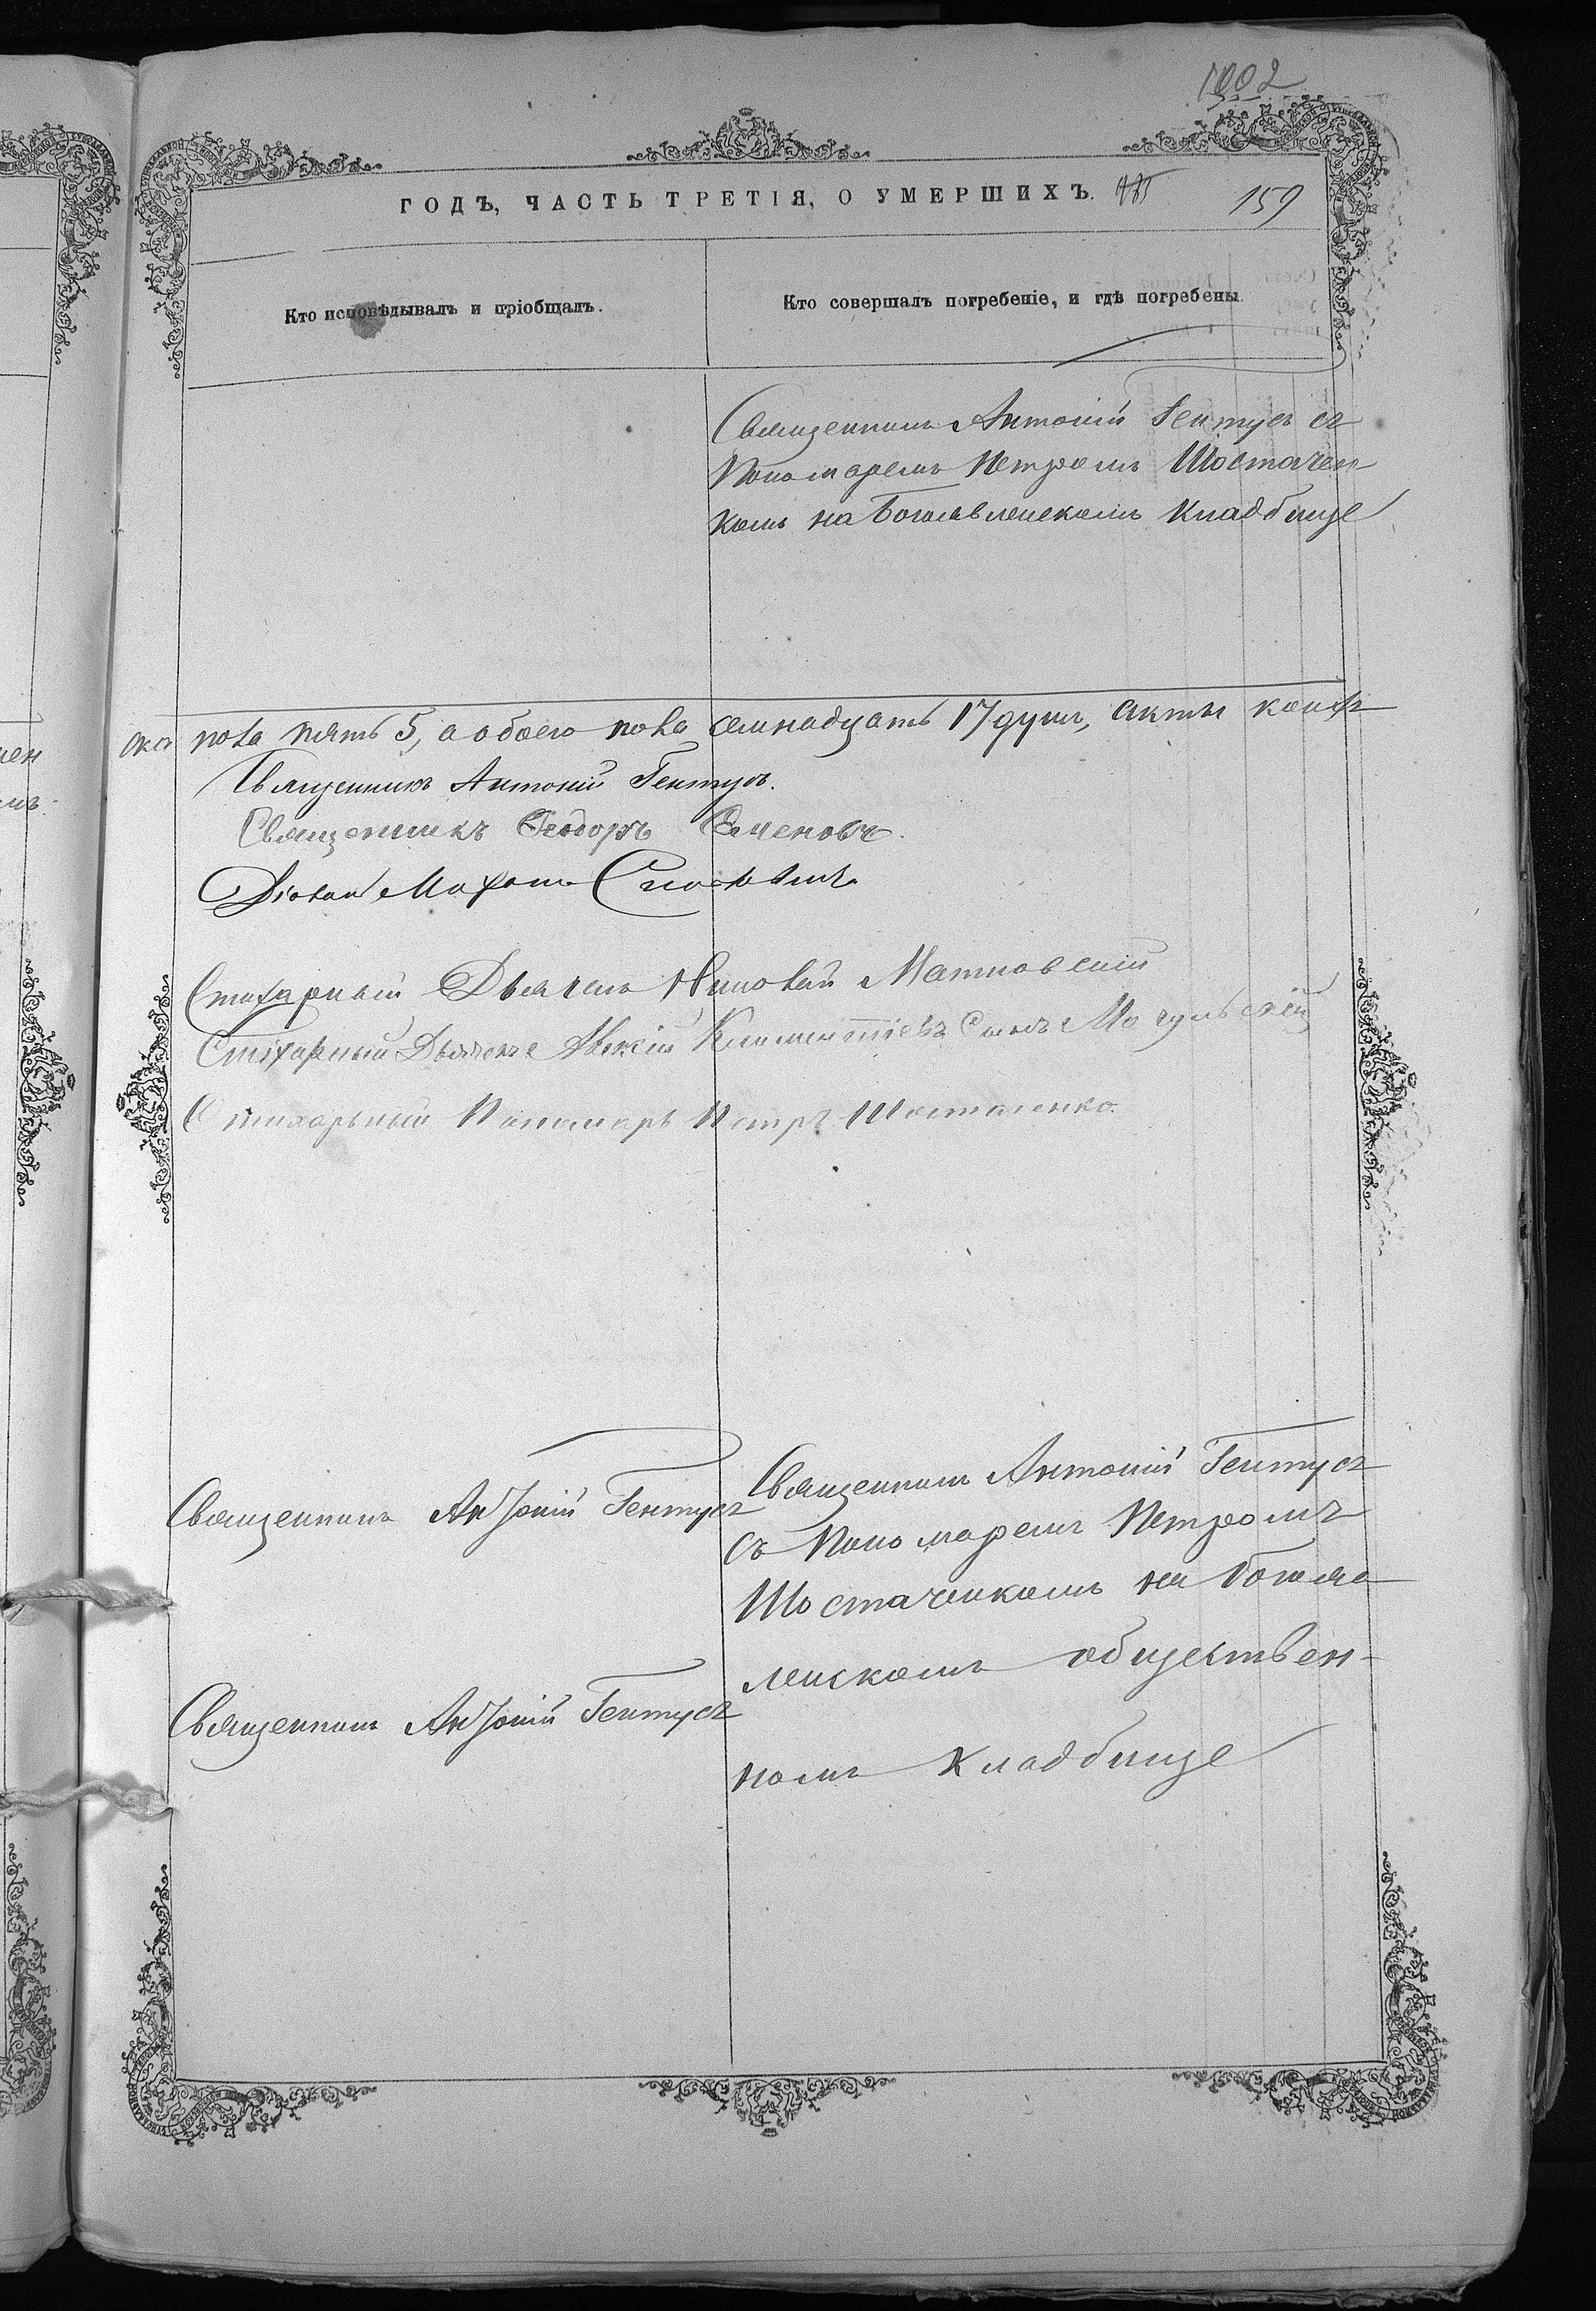 1002
ГОДЪ, ЧАСТЬ ТРЕТІЯ, О УМЕРШИХЪ. 159
Кто исповѣдывалъ и пріобщалъ.
Кто совершалъ погребеніе, и гдѣ погребены
Священникъ Антоній Гентусъ съ
Пономаремъ Петромъ Шостачен
комъ на Богоявленскомъ Кладбище
пола пять 5, а обоего пола семнадцать 17 душъ, Акты
Священникъ Антоній Гентусъ.
Священникъ Ѳеодоръ Семеновъ.
Стихарный Дьячекъ Николай
Стихарный Дьячекъ Климентіевъ Сынъ Могульскій
Стихарный Пономарь Петръ Шостаченко.
Священникъ Антоній Гентусъ
Священникъ Антоній Гентусъ
съ Пономаремъ Петромъ
Шостаченкомъ на Богояв
ленскомъ обществен-
Священникъ Антоній Гентусъ
номъ Кладбище